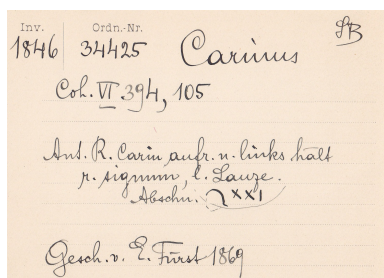 Inv. Ordn.-Nr.
1846 34425 Carinus
Coh. VI 394, 105
Ant. R. Carin, aufr. n. links hält
r. signum, l. Lanze.
Abschn. XXI
Gesch. v. E. Fürst 1869